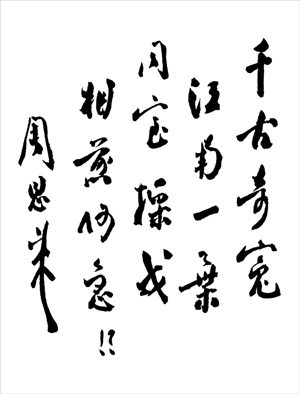 千古奇冤
江南一叶
同室操戈
相煎何急!!
周恩来